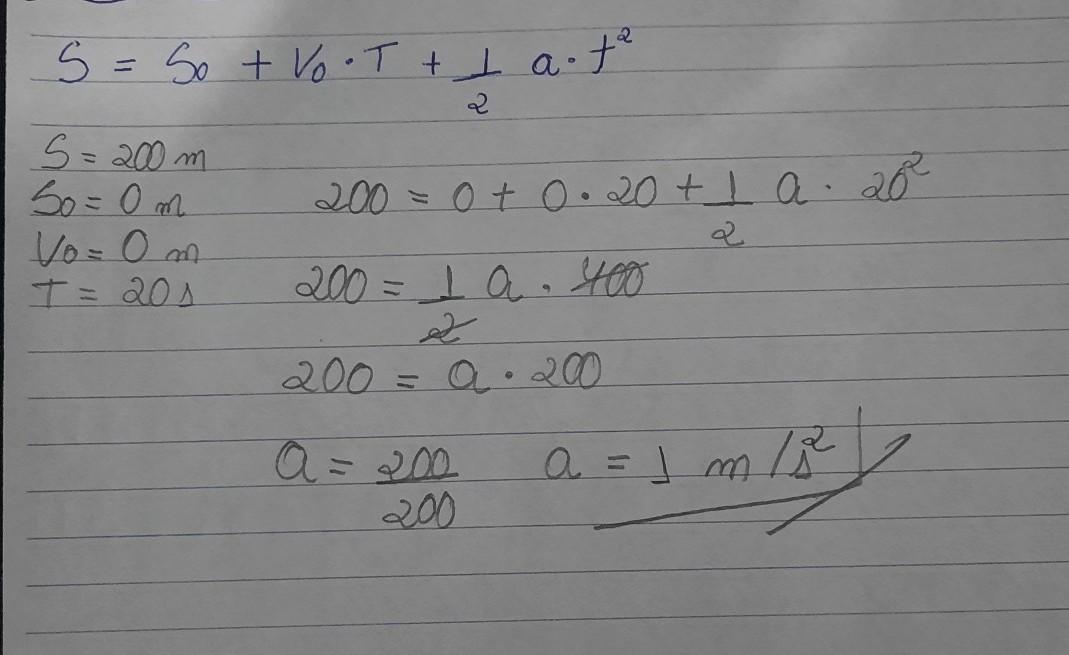 S = So + Vo · T + 1/2 a · t²
S = 200 m
So = 0 m
Vo = 0 m
T = 20 s
200 = 0 + 0 · 20 + 1/2 a · 20²
200 = 1/2 a · 400
200 = a · 200
a = 200/200 a = 1 m/s²